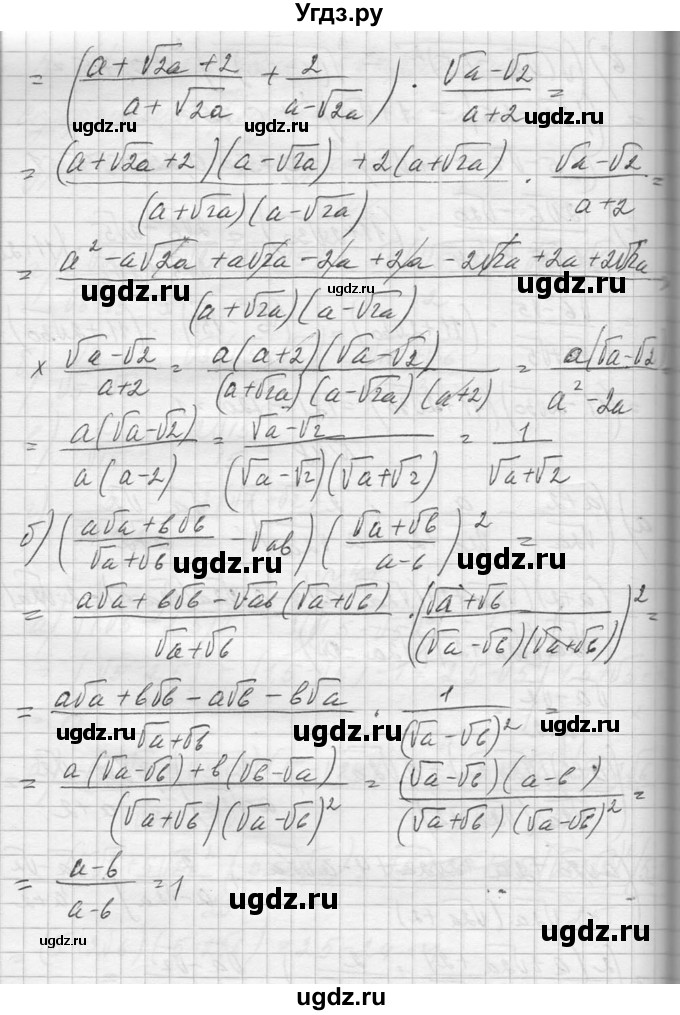 Угдз.ру
= ( (a + √2a + 2)/(a + √2a) + 2/(a - √2a) ) · (√a - √2)/(a + 2) =
ugdz.ru ugdz.ru ugdz.ru
= ((a + √2a + 2)(a - √2a) + 2(a + √2a))/((a + √2a)(a - √2a)) · (√a - √2)/(a + 2) =
= (a² - a√2a + a√2a - 2a + 2a - 2√2a + 2a + 2√2a)/((a + √2a)(a - √2a))
ugdz.ru ugdz.ru ugdz.ru
× (√a - √2)/(a + 2) = (a(a + 2)(√a - √2))/((a + √2a)(a - √2a)(a + 2)) = (a(√a - √2))/(a² - 2a)
ugdz.ru
= (a(√a - √2))/(a(a - 2)) = (√a - √2)/((√a - √2)(√a + √2)) = 1/(√a + √2)
ugdz.ru ugdz.ru
б) ( (a√a + b√b)/(√a + √b) - √ab ) ( (√a + √b)/(a - b) )² =
ugdz.ru ugdz.ru
= (a√a + b√b - √ab(√a + √b))/(√a + √b) · ( (√a + √b)/((√a - √b)(√a + √b)) )² =
ugdz.ru
= (a√a + b√b - a√b - b√a)/(√a + √b) · 1/(√a - √b)² =
ugdz.ru ugdz.ru ugdz.ru
= (a(√a - √b) + b(√b - √a))/((√a + √b)(√a - √b)²) = ((√a - √b)(a - b))/((√a + √b)(√a - √b)²) =
ugdz.ru
= (a - b)/(a - b) = 1
ugdz.ru
ugdz.ru ugdz.ru
ugdz.ru